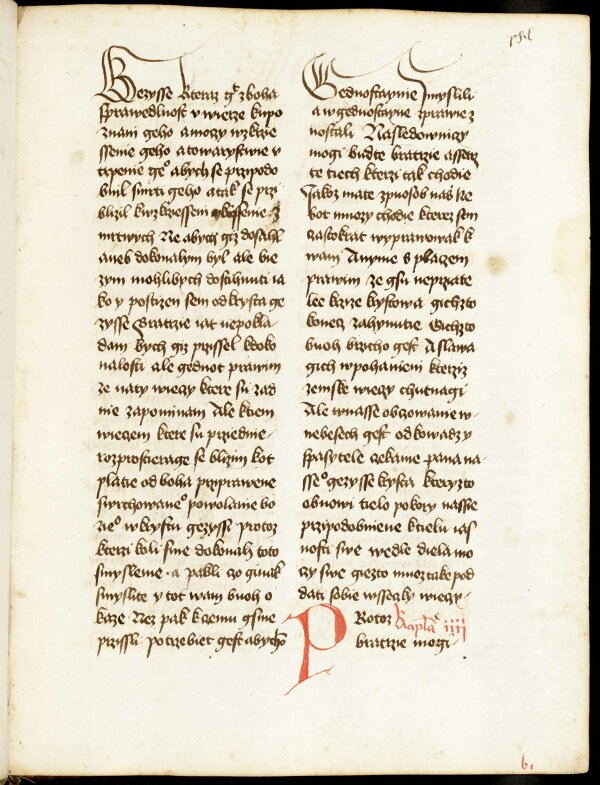 Gezysse kteraz gest zboha
sprawedlnost v wierze kupo
znani geho a moczy wzkrie
ssenie geho a towarzystwie v
trpenie geho abych se przipodo
bnil smrti geho a tak se przi
blizil k wzkrziessenie z
mrtwych Ne abych giz dosahl
aneb dokonalym byl ale bie
zym mohlibych dosihnuti ia
ko y postizen sem od krysta ge
zysse Bratrzie iat nepokla
dam bych giz przissel k doko
nalosti ale gednot prawim
ze naty wieczy ktere su zad
nie zapominam Ale k tiem
wieczem ktere su przednie
rozprostierage se blizim k ot
platie od boha przyprawene
swrchowaneho powolanie bo
zieho w krystu gezysse protoz
kterzi koli sme dokonali toto
smysleme a pakli czo ginak
smyslite y tot wam buoh o
kaze Nez pak k czemu gsme
przissli potrzebiet gest abychom
Gednostaynie smyslili
a w gednostayne zprawie z
nostali Nasledowniczy
mogi budte bratrzie a ssetrz
te tiech kterzi tak chodie
Jakoz mate zpuosob nas Ne
bot mnozy chodie kterez sem
czastokrat wyprawowal k
wam A nynie s placzem
prawim ze gsu neprzate
lee krzize krystowa gichzto
konecz zahynutie Gichzto
buoh brzicho gest A slawa
gich w pohanieni kterziz
zemske wieczy chutnagi
Ale wnasse obczowanie w
nebesech gest odkowadz y
spasytele czekame pana na
sseho gezysse krysta kteryzto
obnowi tielo pokory nassie
przipodobniene k tielu ias
nosti swe wedle diela mo
czy swe giezto muoz take pod
dati sobie wsseczky wieczy
Protoz Kapitola iiii
bratrzie mogi
b